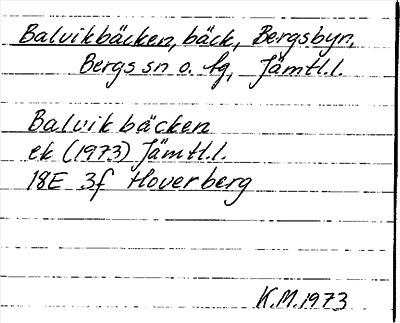 Balvikbäcken, bäck, Bergsbyn,
Bergs sn o. tg, Jämtl.l.
Balvikbäcken
ek (1973) Jämtl.l.
18E 3f Hoverberg
K.M.1973